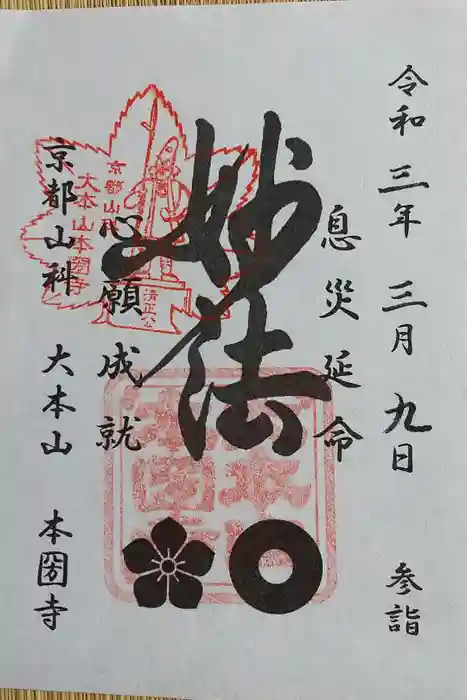 令和三年三月九日 参詣
息災延命
妙法
心願成就
京都山科 大本山 本圀寺
京都山科
大本山本圀寺
清正公